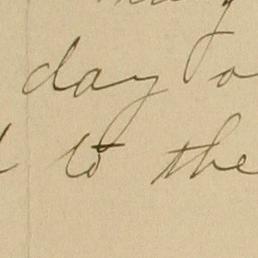 day o
to the